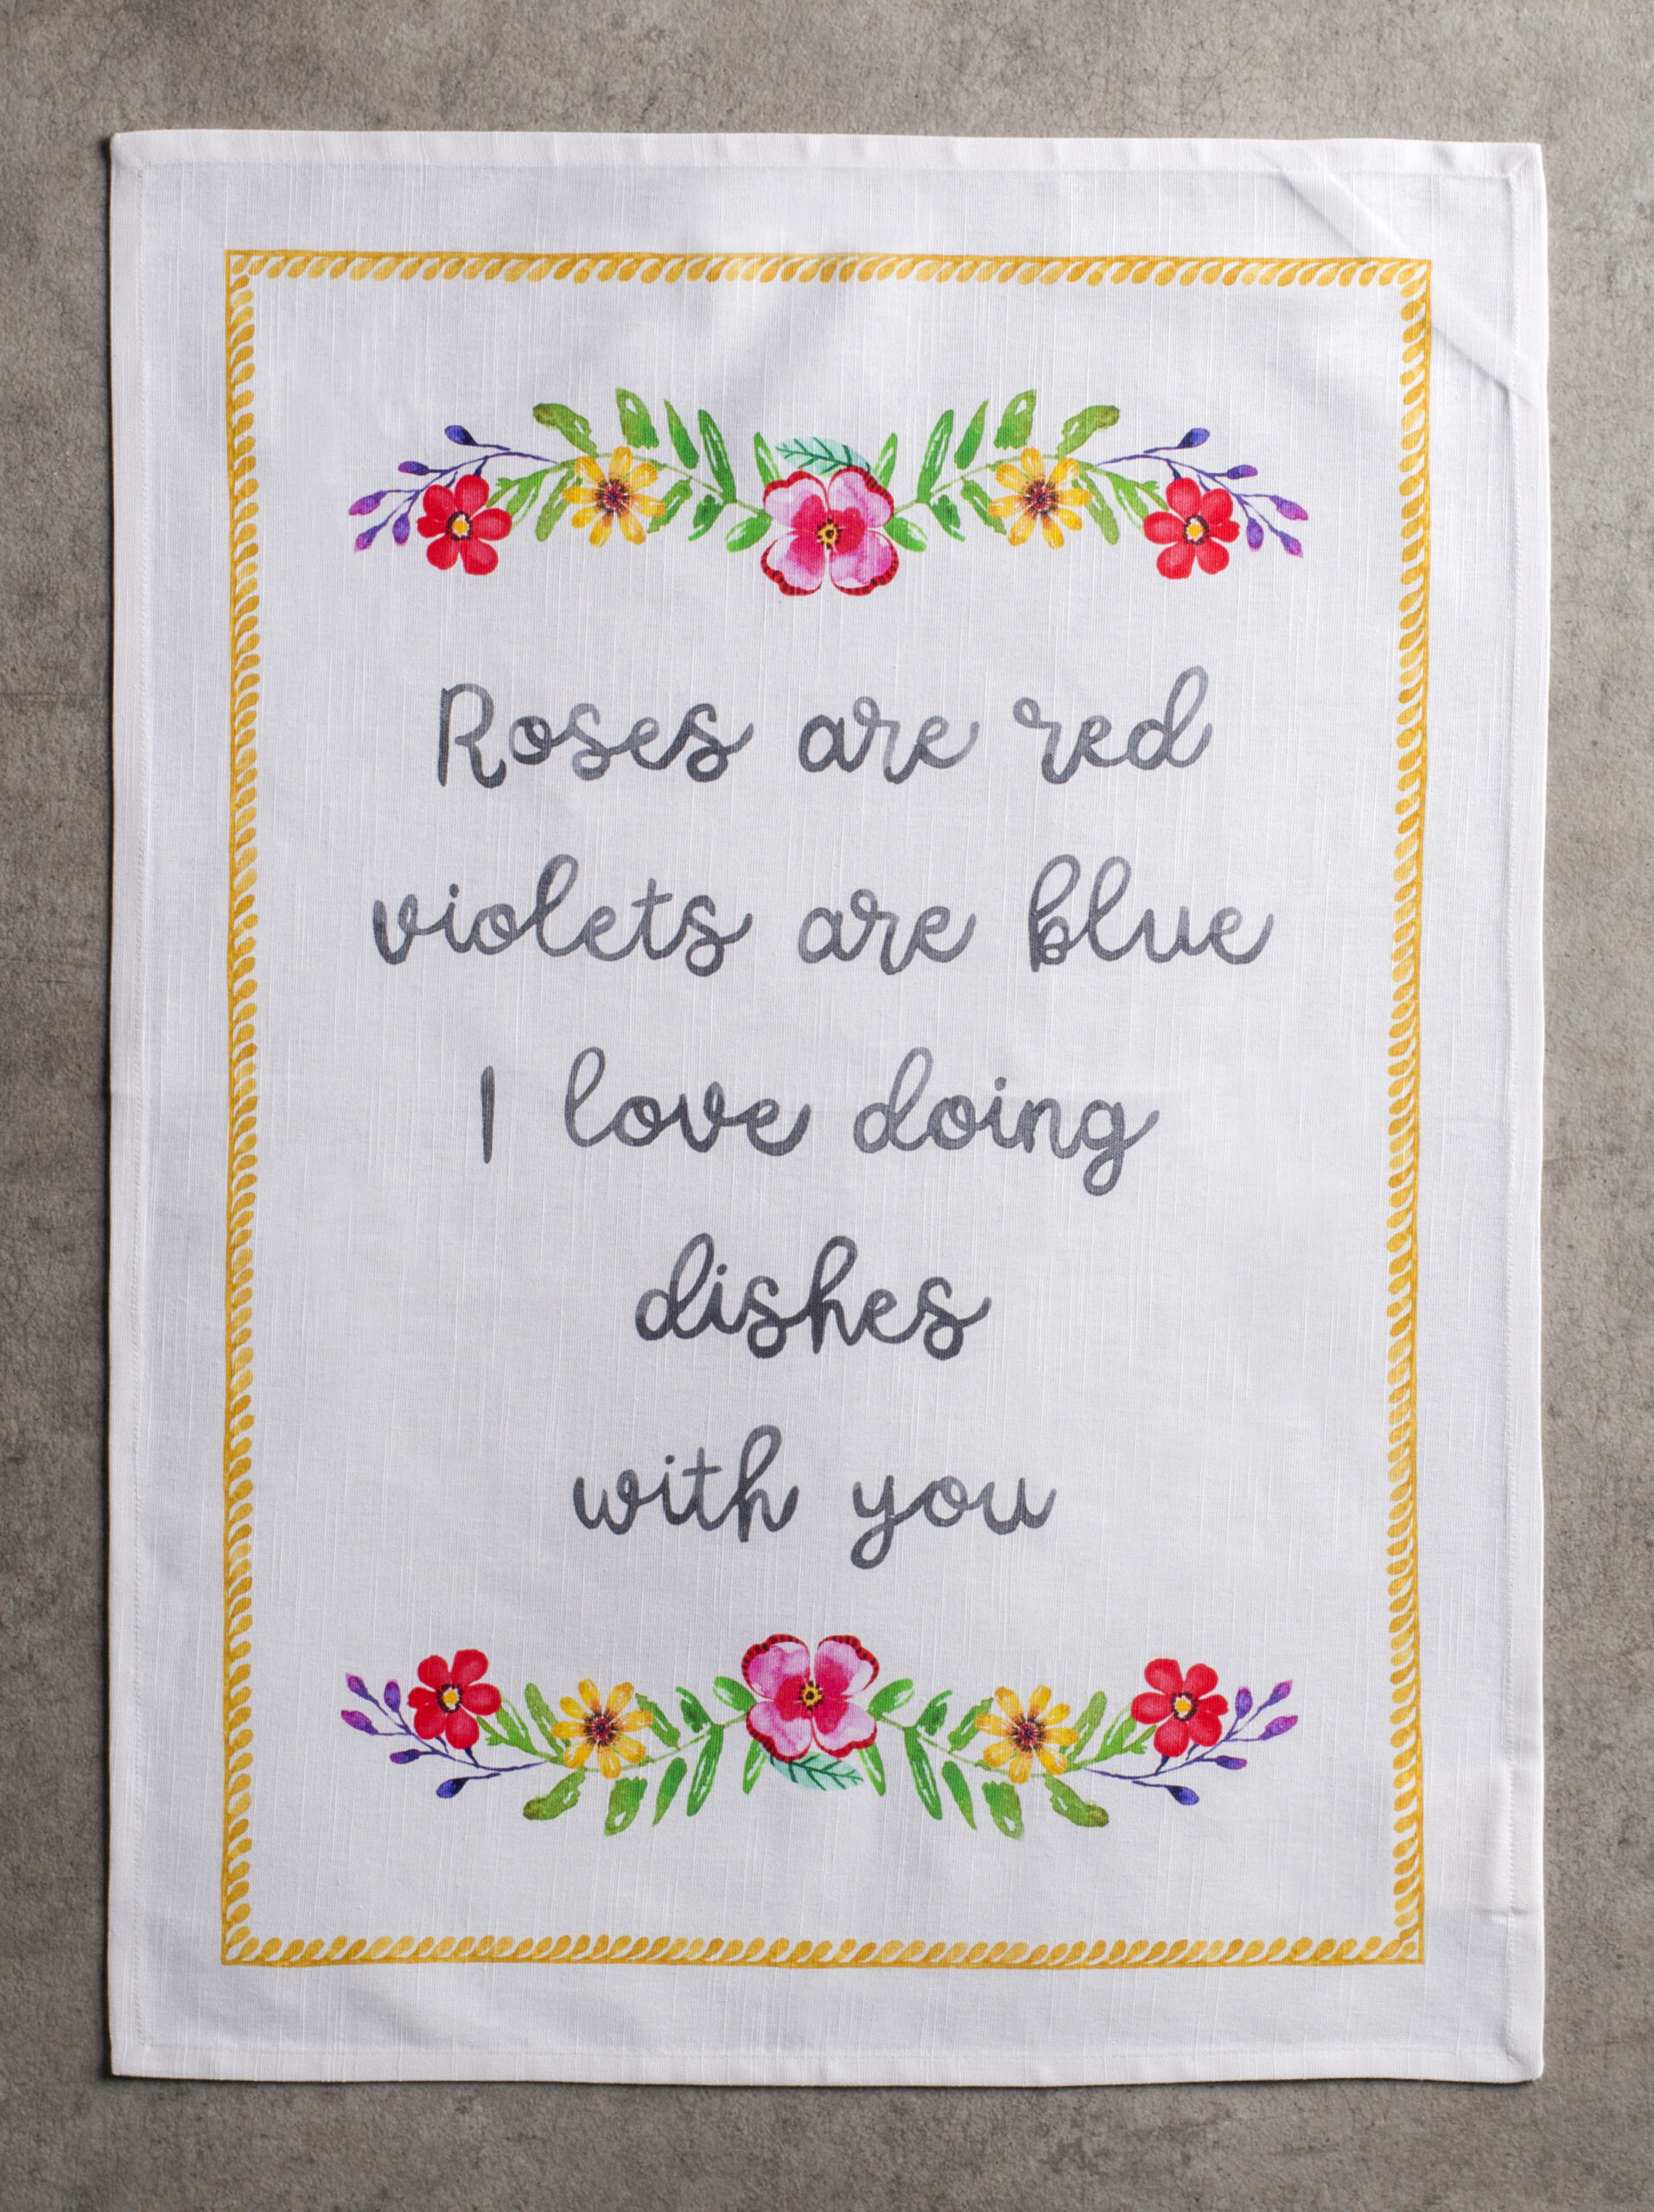 Roses are red
violets are blue
I love doing
dishes
with you